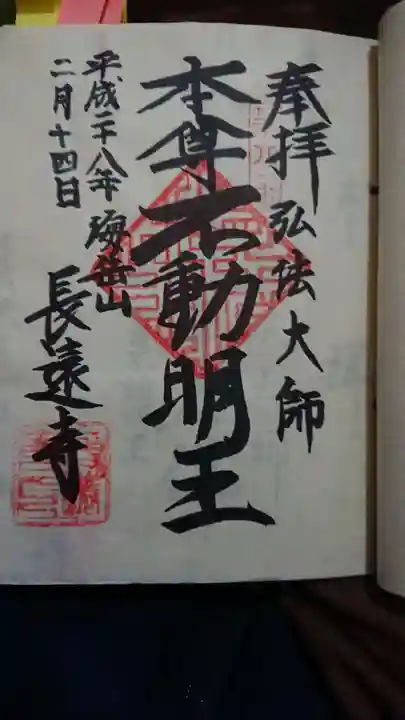 奉拝 弘法大師
本尊不動明王
平成二十八年 海岸山
二月十四日
長遠寺